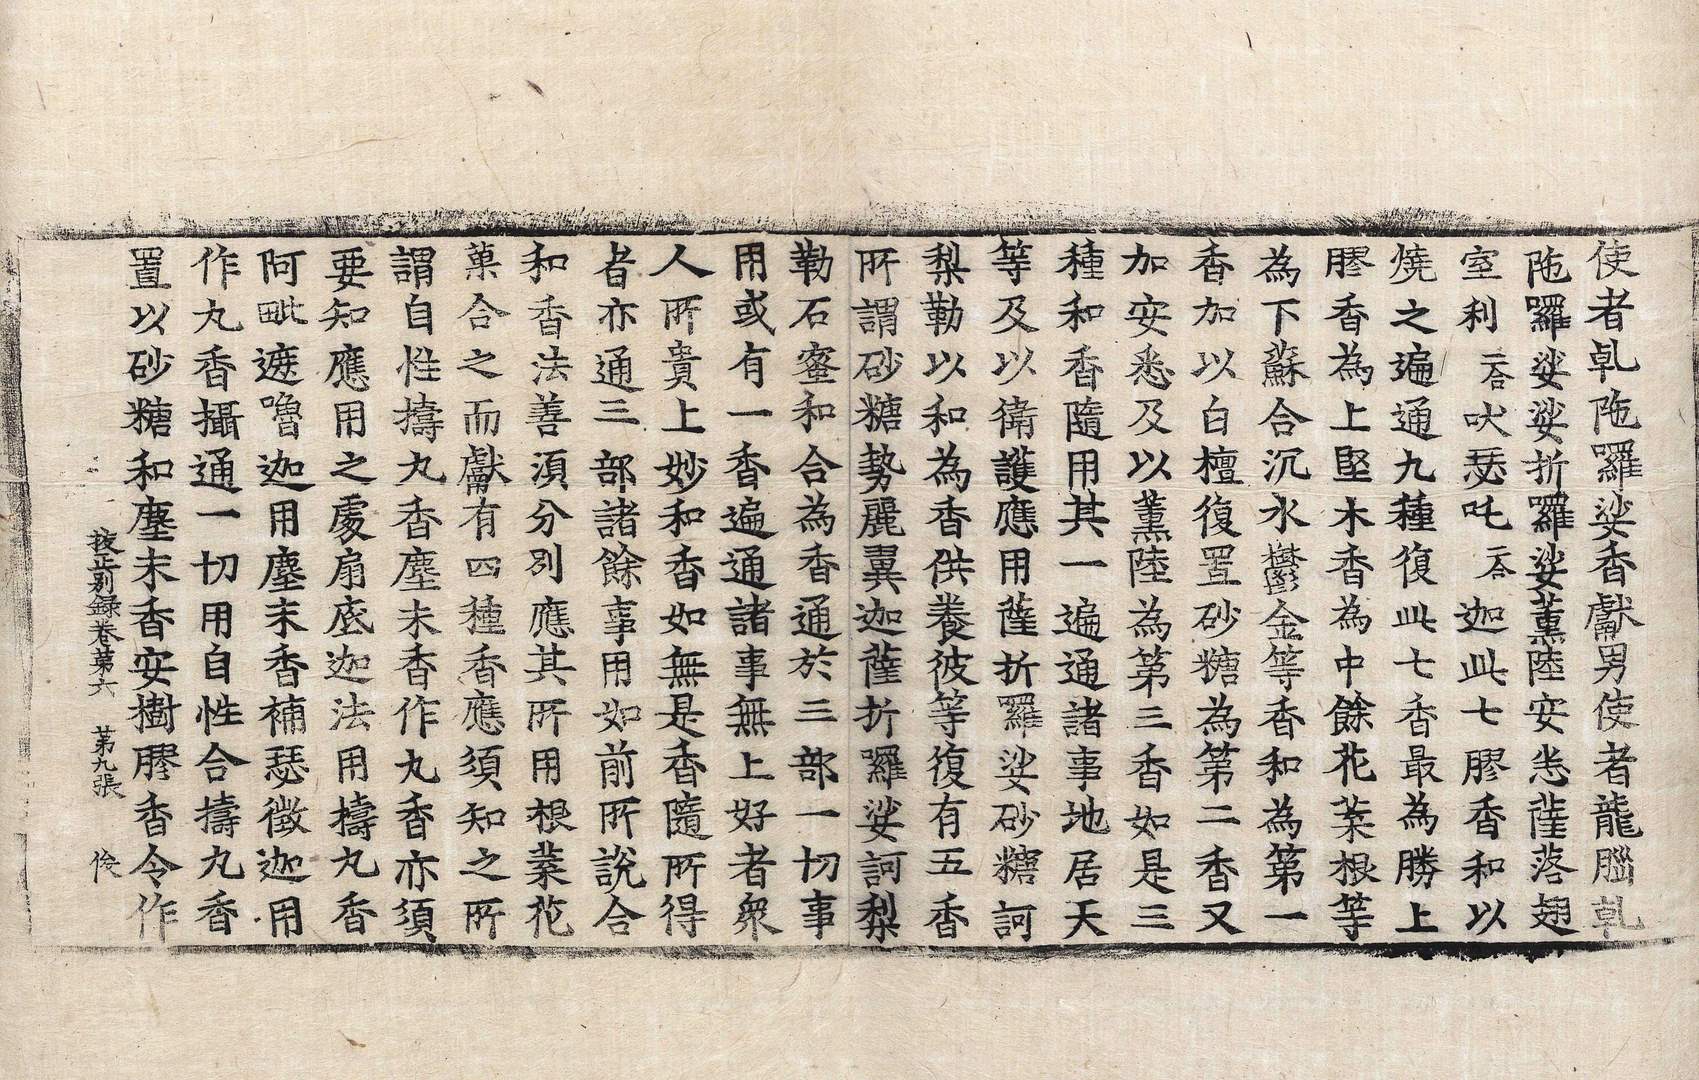 使者乹陁囉娑香獻男使者龍腦乹
陁囉娑娑折囉娑薰陸安悉薩落翅
室利二合吠瑟吒二合迦此七膠香和以
燒之遍通九種復此七香最為勝上
膠香為上堅木香為中餘花葉根等
為下蘇合沉水欝金等香和為第一
香加以白檀復置砂糖為第二香又
加安悉及以薰陸為第三香如是三
種和香隨用其一遍通諸事地居天
等及以衛護應用薩折囉娑砂糖訶
梨勒以和為香供養彼等復有五香
所謂砂糖勢麗翼迦薩折囉娑訶梨
勒石蜜和合為香通於三部一切事
用或有一香遍通諸事無上好者衆
人所貴上妙和香如無是香隨所得
者亦通三部諸餘事用如前所說合
和香法善湏分別應其所用根葉花
菓合之而獻有四種香應須知之所
謂自性擣丸香塵末香作丸香亦須
要知應用之處扇底迦法用擣丸香
阿毗遮嚕迦用塵末香補瑟徵迦用
作丸香攝通一切用自性合擣丸香
置以砂糖和塵末香安樹膠香令作
挍正别錄卷第六 第九張 俊